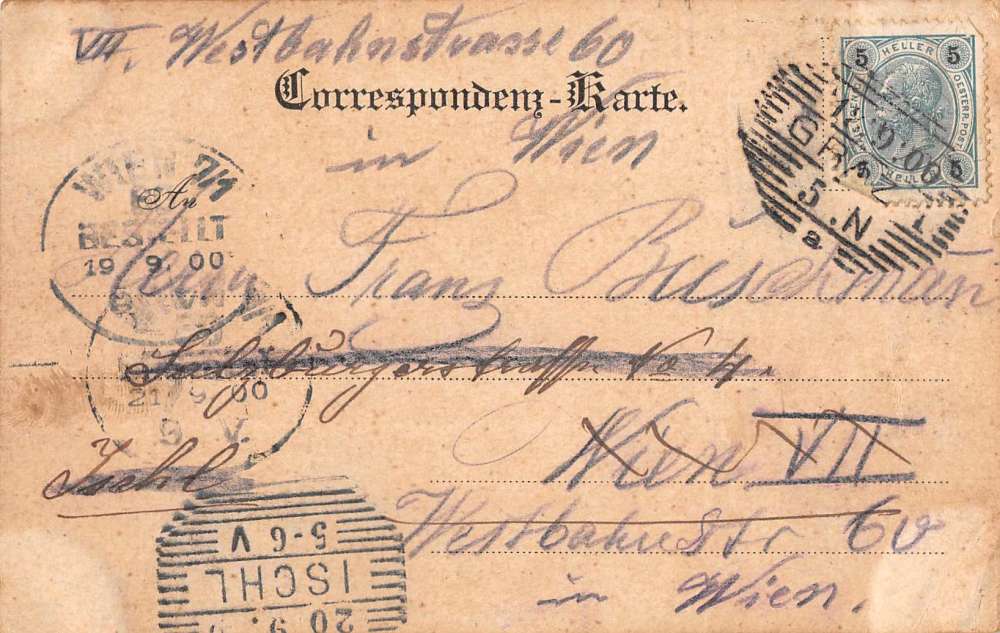 VII. Westbahnstrasse 60
Correspondenz-Karte.
in Wien
5 HELLER 5
OESTERR. POST
5
HELLER
GRAZ 1
5. N
a
WIEN 7/1
An
BESTELLT
19 9. 00
Herrn Franz
Salzburgerstrasse No 4.
21. 9. 00
9. V.
Wien VII
Ischl
Westbahnstr 60
in Wien.
20 9.
ISCHL
5-6 V